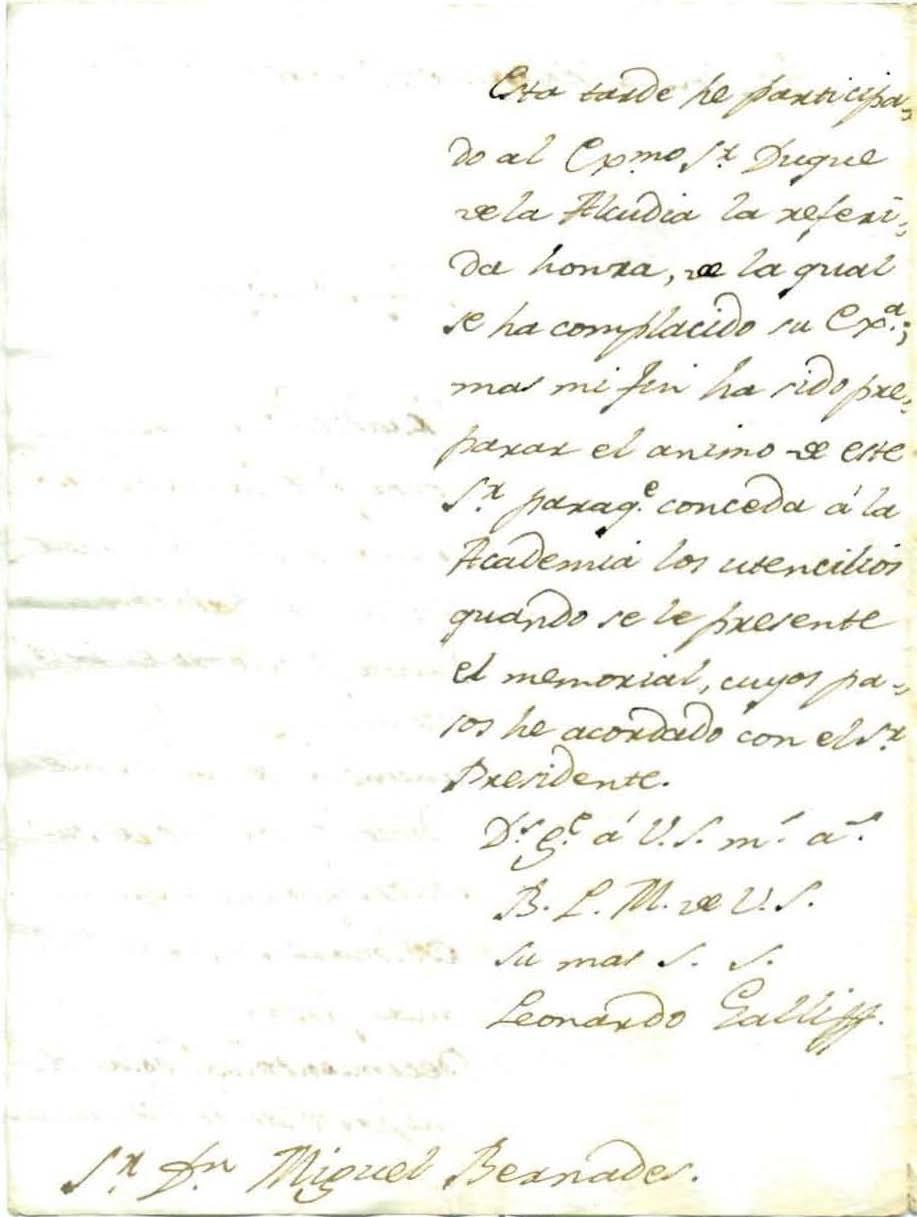 Esta tarde he participa-
do al Exmo. Sr. Duque
de la Alcudia la referi-
da honra, de la qual
se ha complacido su Exa.;
mas mi fin ha sido pre-
parar el animo de este
Sr. paraqe. conceda á la
Academia los utencilios
quando se le presente
el memorial, cuyos pa-
sos he acordado con el Sr.
Presidente.
Ds. ge. á V. S. ms. as.
B. L. M. de V. S.
su mas S. S.
Leonardo Galli
Sr. Dn. Miguel Bernades.